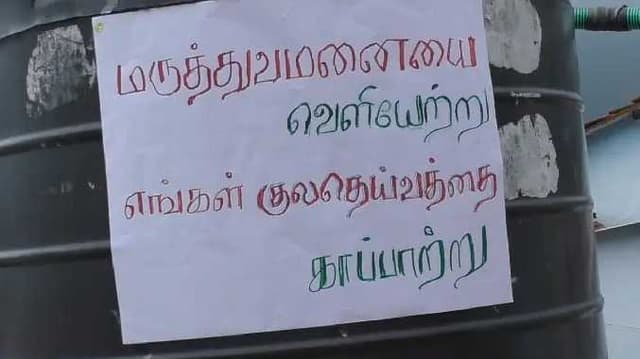 மருத்துவமனையை
வெளியேற்று
எங்கள் குலதெய்வத்தை
காப்பாற்று